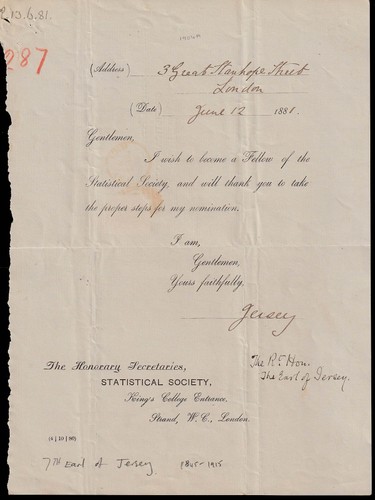 R 13.6.81.
287
(Address) 3 Great Stanhope Street
London
(Date) June 12 1881.
Gentlemen,
I wish to become a Fellow of the
Statistical Society, and will thank you to take
the proper steps for my nomination.
I am,
Gentlemen,
Yours faithfully,
Jersey
The Rt Hon.
The Earl of Jersey.
The Honorary Secretaries,
STATISTICAL SOCIETY,
King's College Entrance,
Strand, W.C., London.
7TH Earl of Jersey 1845-1915